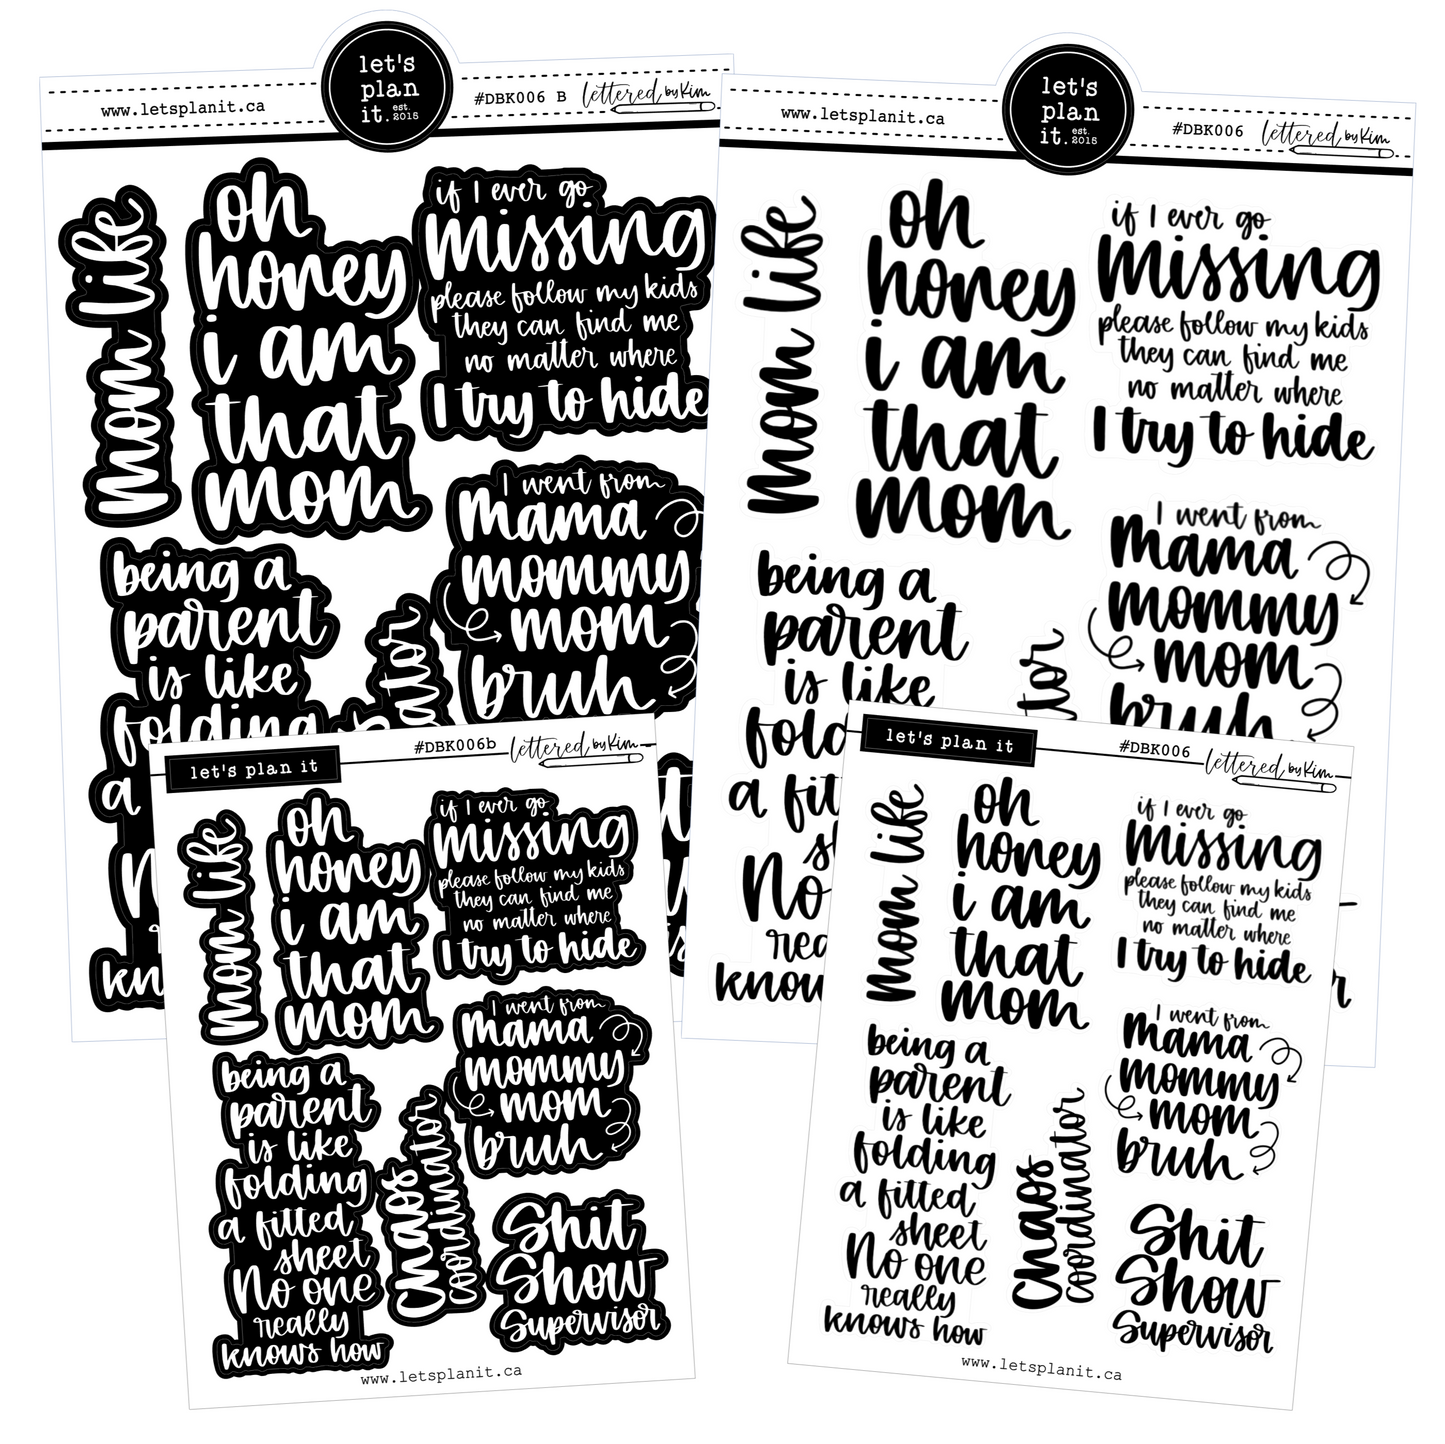 www.letsplanit.ca
let's
plan
it.
est.
2015
#DBK006 B
lettered by Kim
mom life
oh
honey
i am
that
mom
if I ever go
missing
please follow my kids
they can find me
no matter where
I try to hide
I went from
mama
mommy
mom
bruh
being a
parent
is like
folding
a
No
kn
ator
www.letsplanit.ca
let's
plan
it.
est.
2015
#DBK006
lettered by Kim
mom life
oh
honey
i am
that
mom
if I ever go
missing
please follow my kids
they can find me
no matter where
I try to hide
I went from
mama
mommy
mom
bruh
being a
parent
is like
fold
a fit
sh
No
rea
know
tor
let's plan it
#DBK006b
lettered by Kim
mom life
oh
honey
i am
that
mom
if I ever go
missing
please follow my kids
they can find me
no matter where
I try to hide
I went from
mama
mommy
mom
bruh
being a
parent
is like
folding
a fitted
sheet
No one
really
knows how
Chaos
coordinator
Shit
Show
Supervisor
www.letsplanit.ca
let's plan it
#DBK006
lettered by Kim
mom life
oh
honey
i am
that
mom
if I ever go
missing
please follow my kids
they can find me
no matter where
I try to hide
I went from
mama
mommy
mom
bruh
being a
parent
is like
folding
a fitted
sheet
No one
really
knows how
Chaos
coordinator
Shit
Show
Supervisor
www.letsplanit.ca